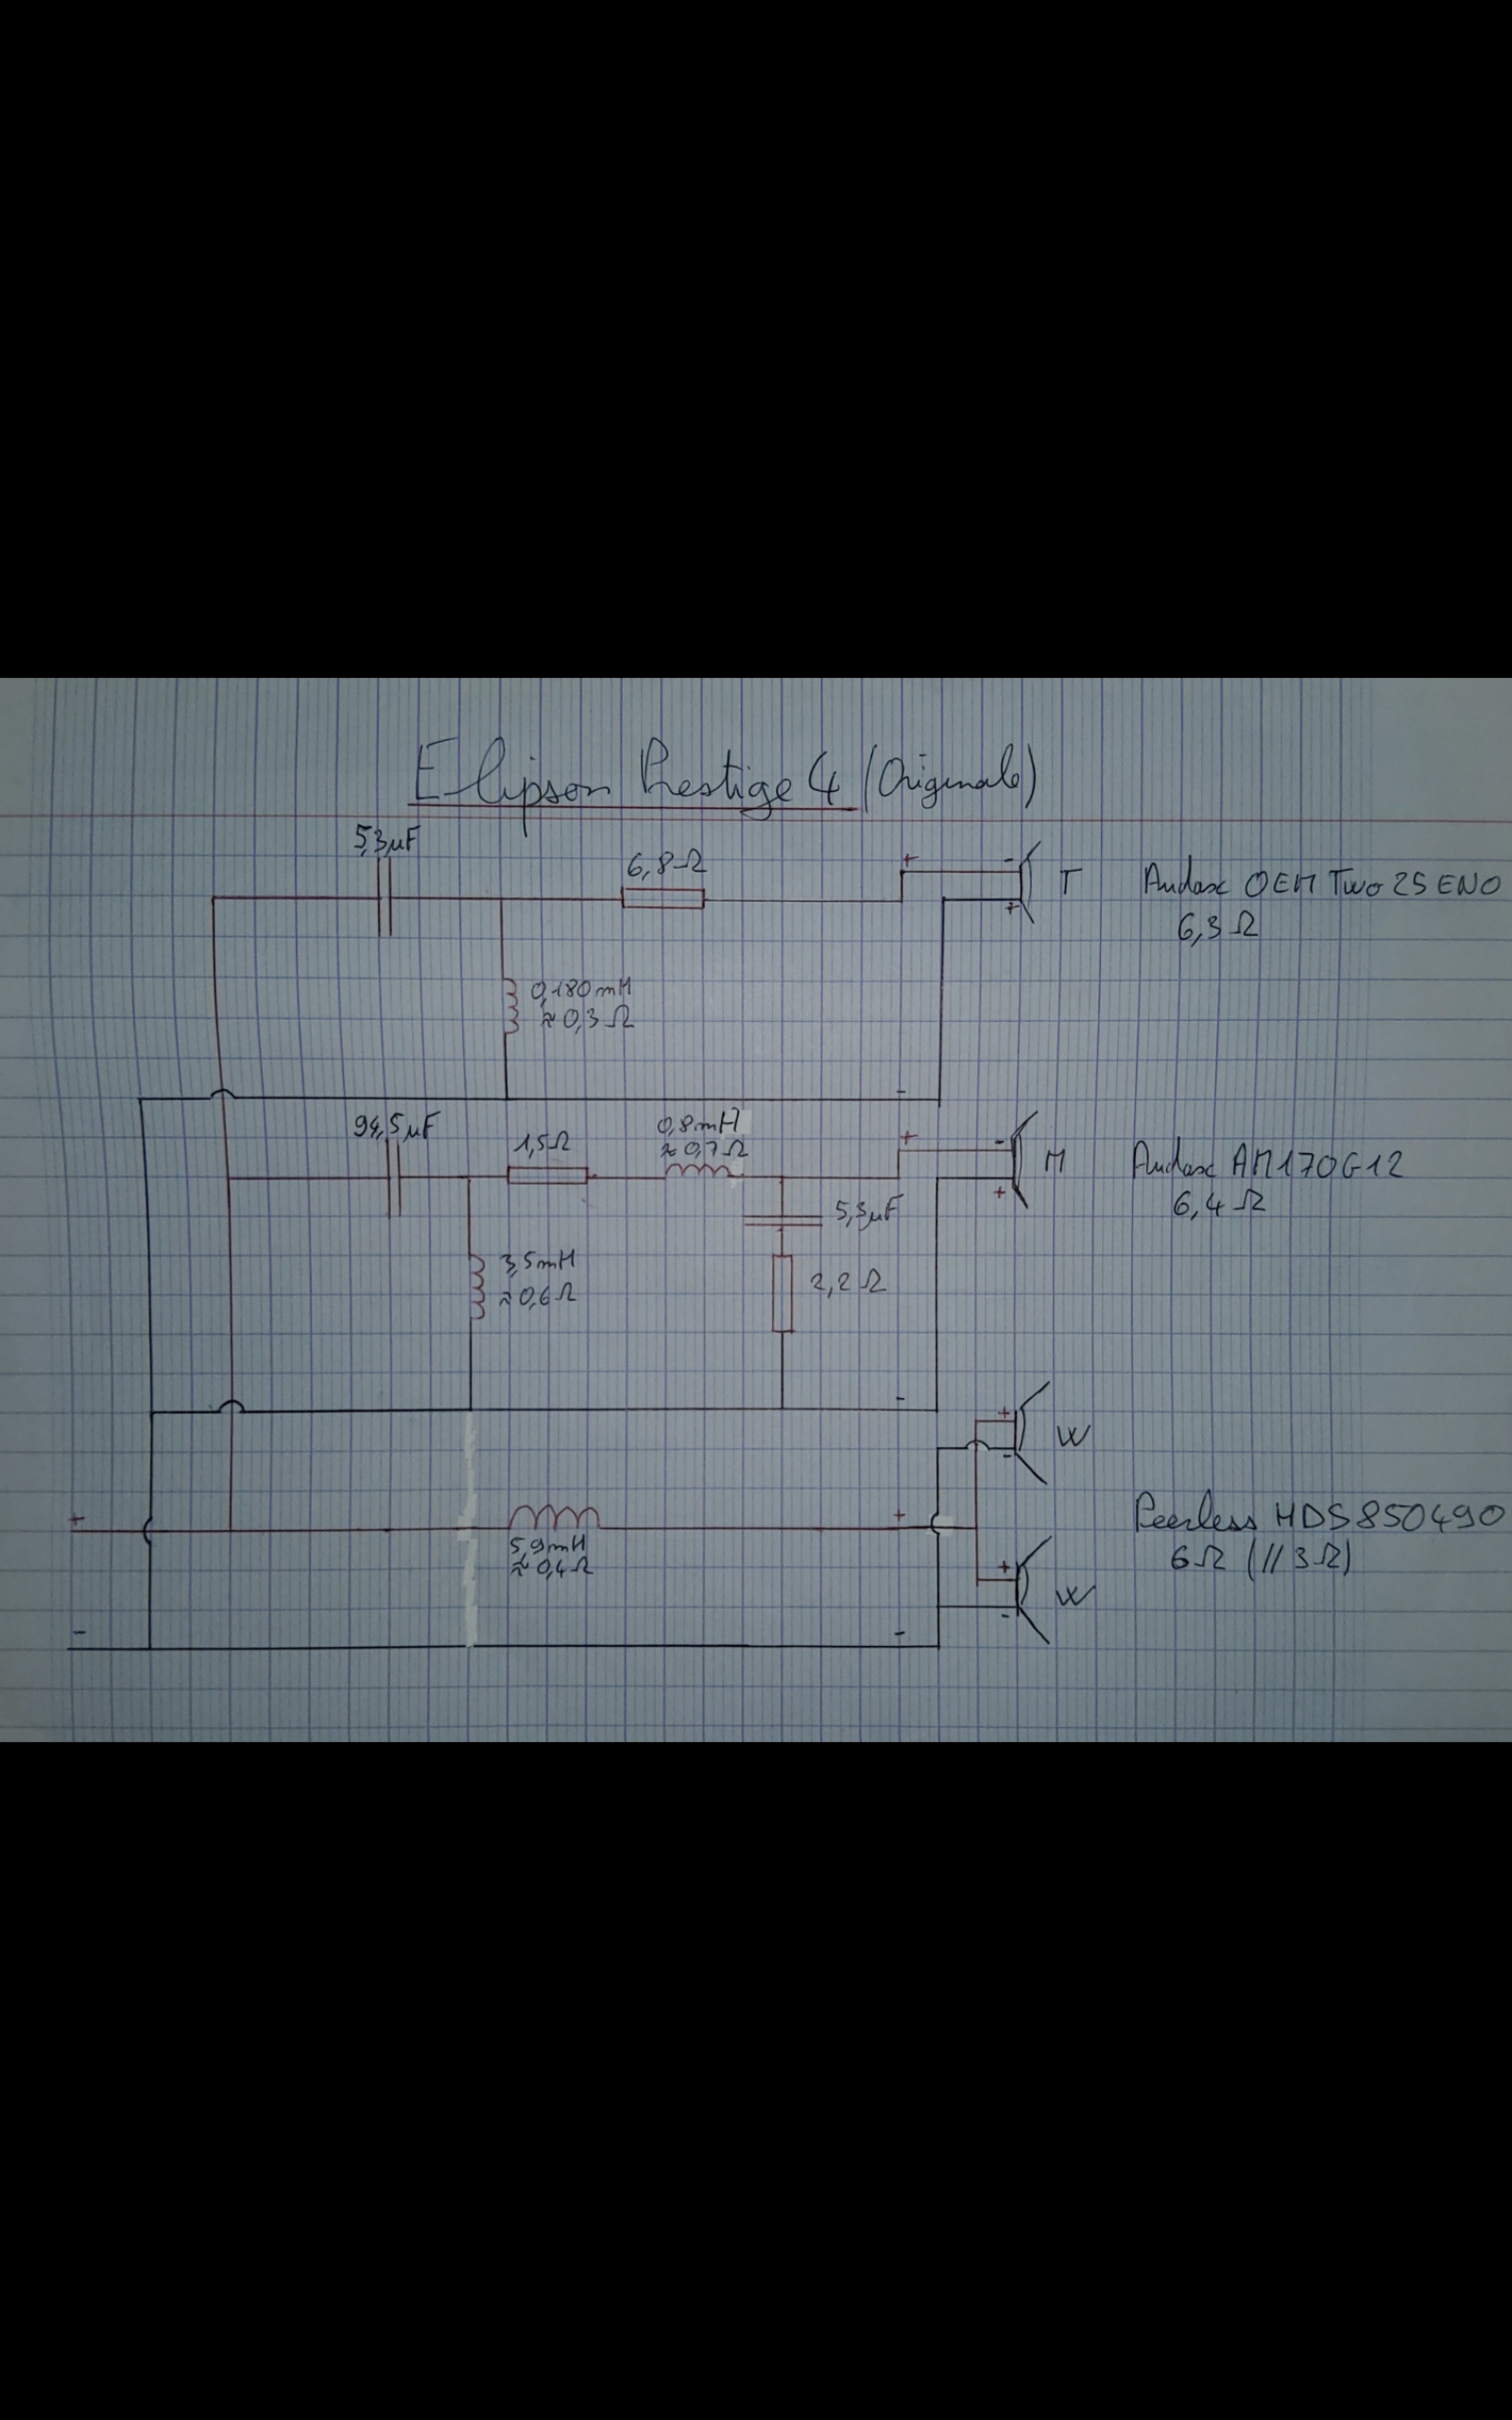 Elipson Prestige 4 (Originale)
5,3µF
6,8Ω
+
-
T
Audax OEM Two 25 ENO
+
6,3Ω
0,180mH
≈0,3Ω
-
94,5µF
1,5Ω
0,8mH
≈0,7Ω
+
-
M
Audax AM170G12
+
6,4Ω
5,3µF
3,5mH
≈0,6Ω
2,2Ω
-
+
W
-
+
+
Peerless HDS850490
5,9mH
≈0,4Ω
6Ω (//3Ω)
+
W
-
-
-